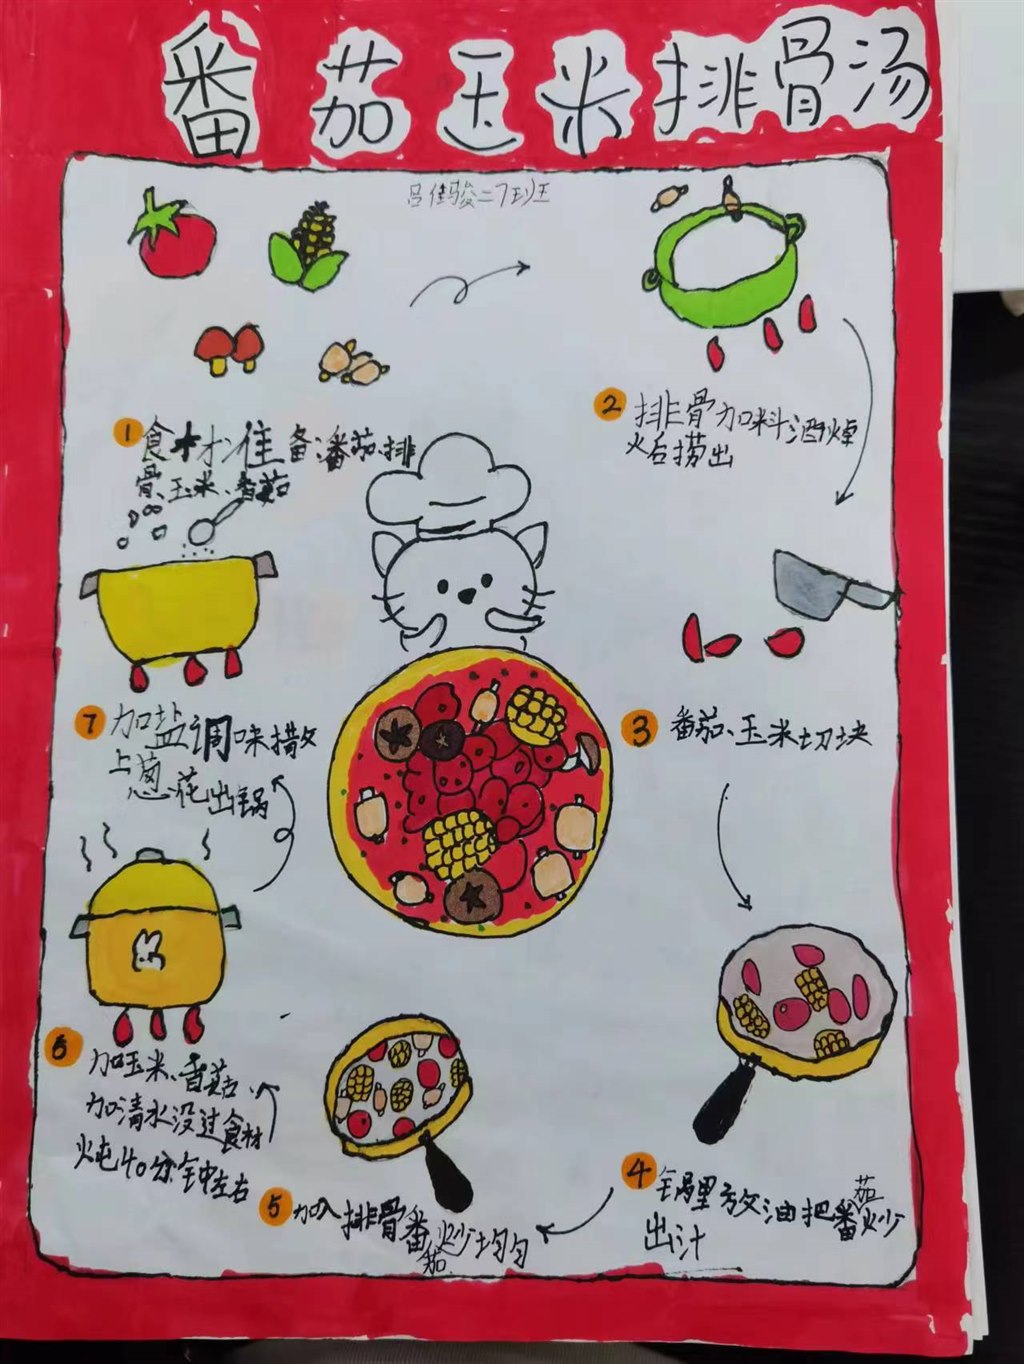 番茄玉米排骨汤
吕佳骏二7班
1 食材准备:番茄、排
骨、玉米、香菇
2 排骨加料酒焯
火后捞出
3 番茄、玉米切块
4 锅里放油把番茄炒
出汁
5 加入排骨番茄炒均匀
6 加玉米、香菇
加清水没过食材
炖40分钟左右
7 加盐调味撒
上葱花出锅